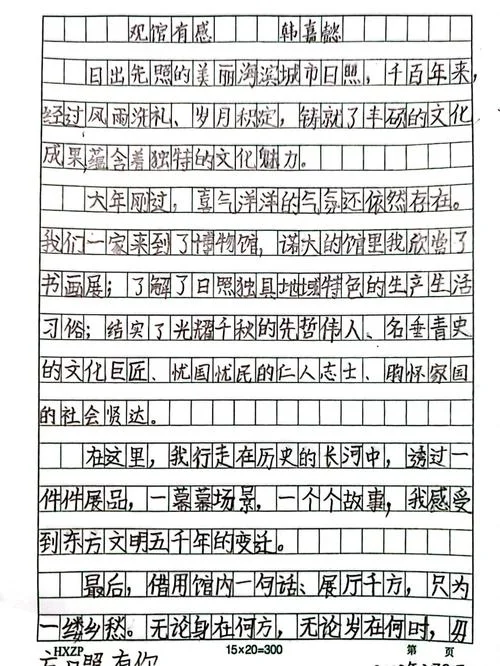 观馆有感 韩嘉懿
日出先照的美丽海滨城市日照，千百年来，
经过风雨洗礼、岁月积淀，铸就了丰硕的文化
成果蕴含着独特的文化魅力。
大年刚过，喜气洋洋的气氛还依然存在。
我们一家来到了博物馆，诺大的馆里我欣赏了
书画展；了解了日照独具地域特色的生产生活
习俗；结实了光耀千秋的先哲伟人、名垂青史
的文化巨匠、忧国忧民的仁人志士、胸怀家国
的社会贤达。
在这里，我行走在历史的长河中，透过一
件件展品，一幕幕场景，一个个故事，我感受
到东方文明五千年的变迁。
最后，借用馆内一句话：展厅千方，只为
一缕乡愁。无论身在何方，无论岁在何时，
HXZP 15×20=300 第 页